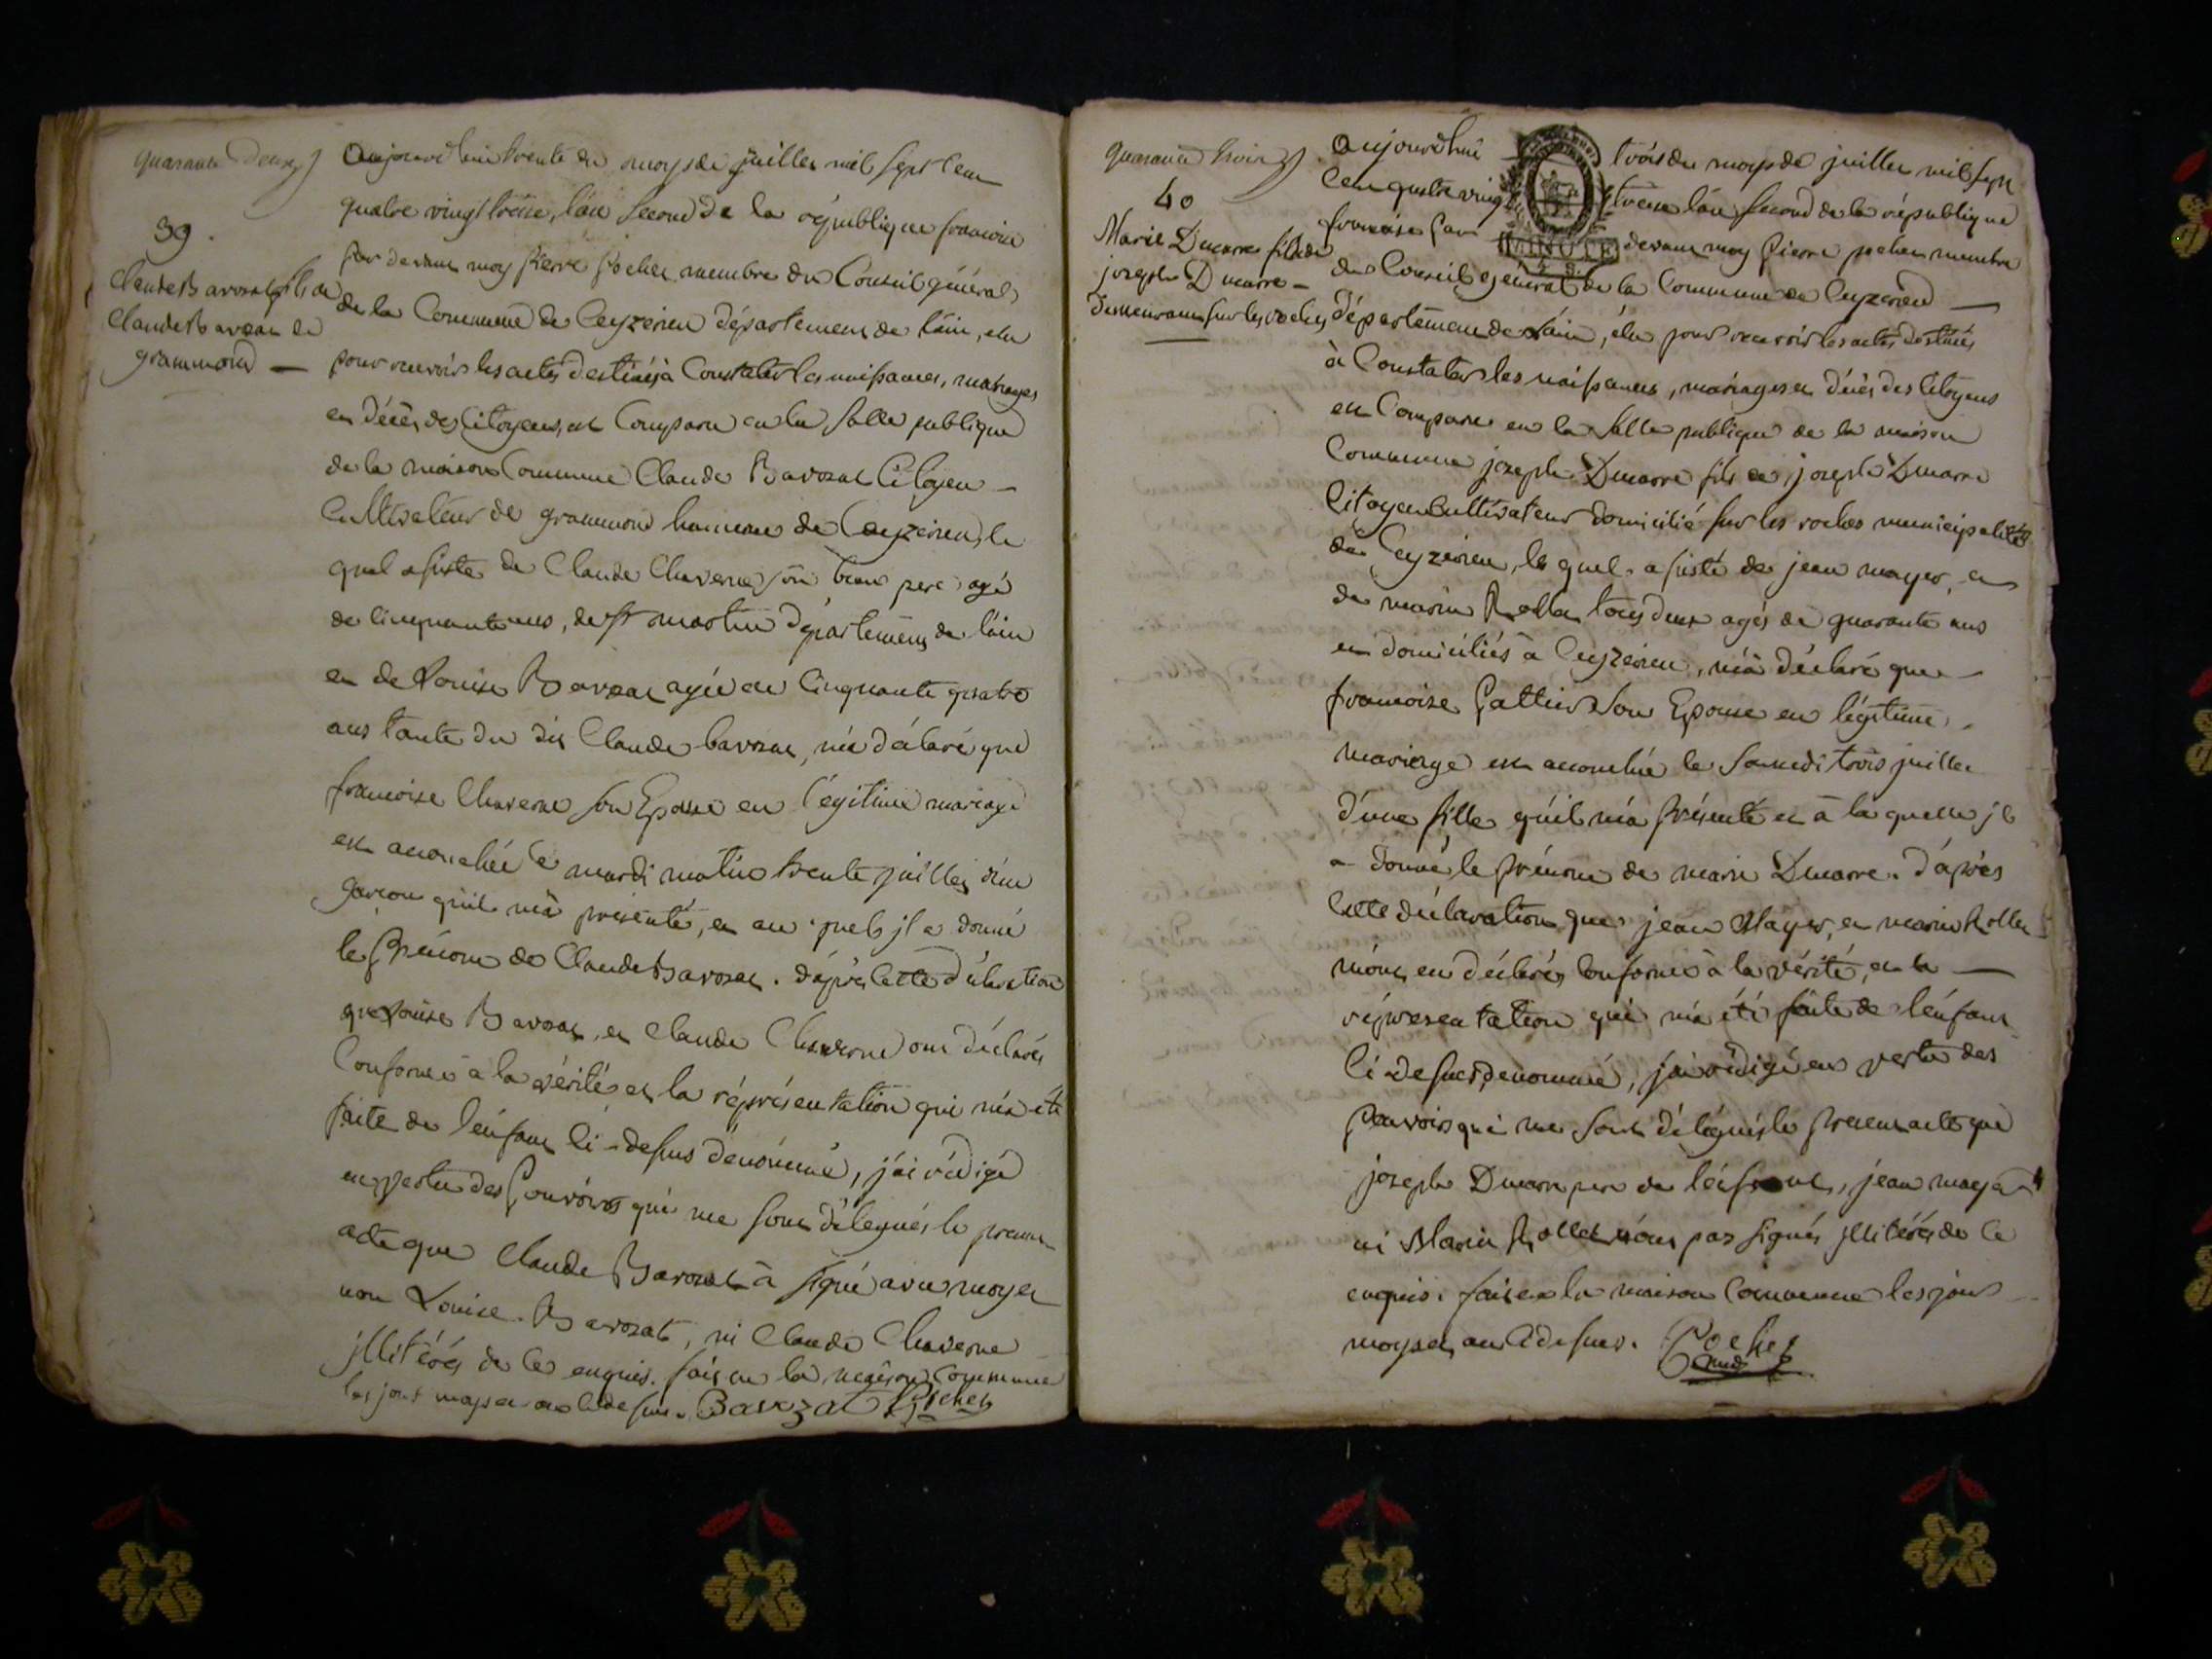 quarante deux
39.
Claude Bavozat fils de
Claude Bavozat de
grammond —
aujourd'hui trente du moys de juillet mil sept cent
quatre vingt treise, l'an second de la république francoise
par devant moy pierre pochet membre du Conseil général
de la Commune de Ceyzerieu département de l'ain, elu
pour recevoir les actes destinés à Constater les naissances, mariages
et décès, des Citoyens, est Comparu en la salle publique
de la maison Commune Claude Bavozat Citoyen —
Cultivateur de grammond hameau de Ceyzerieu, le
quel assisté de Claude Chaverne son beau pere agé
de cinquante ans, de st martin département de l'ain
et de Louise Bavozat agée de Cinquante quatre
ans tante du dit Claude bavozat, m'a déclaré que
francoise Chaverne son Epouse en légitime mariage
est accouchée le mardi matin trente juillet d'un
garcon qu'il m'a présenté, et au quel jl a donné
le prénom de Claude Bavozat. d'après cette déclaration
que Louise Bavozat, et Claude Chaverne ont déclarés
Conforme à la vérité et la réprésentation qui m'a été
faite de l'enfant Ci-dessus dénommé, j'ai rédigé
en vertu des pouvoirs qui me sont délegués le present
acte que Claude Bavozat à signé avec moy et
non Louise Bavozat, ni Claude Chaverne
jllitérés de ce enquis. fait en la maison Commune
les jour moys et an Cidessus. Bavozat Pochet
quarante trois
40
Marie Ducarre fille de
joseph Ducarre —
demeurant sur les roches
aujourd'hui trois du moys de juillet mil sept
Cent quatre vingt treise l'an second de la république
francoise par devant moy pierre pochet membre
MINUTE
du Conseil général de la Commune de Ceyzerieu —
département de l'ain, élu pour recevoir les actes destinés
à Constater les naissances, mariages et décès des Citoyens
est Comparu en la salle publique de la maison
Commune joseph Ducarre fils de joseph Ducarre
Citoyen Cultivateur domicilié sur les roches municipalité
de Ceyzerieu, le quel assisté de jean mayer, et
de marin Rollet tous deux agés de quarante ans
et domiciliés à Ceyzerieu, m'a déclaré que —
francoise Gallier son Epouse en légitime
mariage est accouchée le samedi trois juillet
d'une fille qu'il m'a présenté et à la quelle jl
a donné le prénom de marie Ducarre. d'après
Cette déclaration que jean Mayer, et marin Rollet
m'ont en déclarés Conforme à la vérité, et la —
réprésentation qui m'a été faite de l'enfant
Ci-dessus denommé, j'ai rédigé en vertu des
pouvoirs qui me sont délégués le present acte que
joseph Ducarre pere de l'enfant, jean mayer
ni Marin Rollet n'ont pas signés jllitérés de ce
enquis. fait en la maison Commune les jour
moys et an Cidessus. Pochet